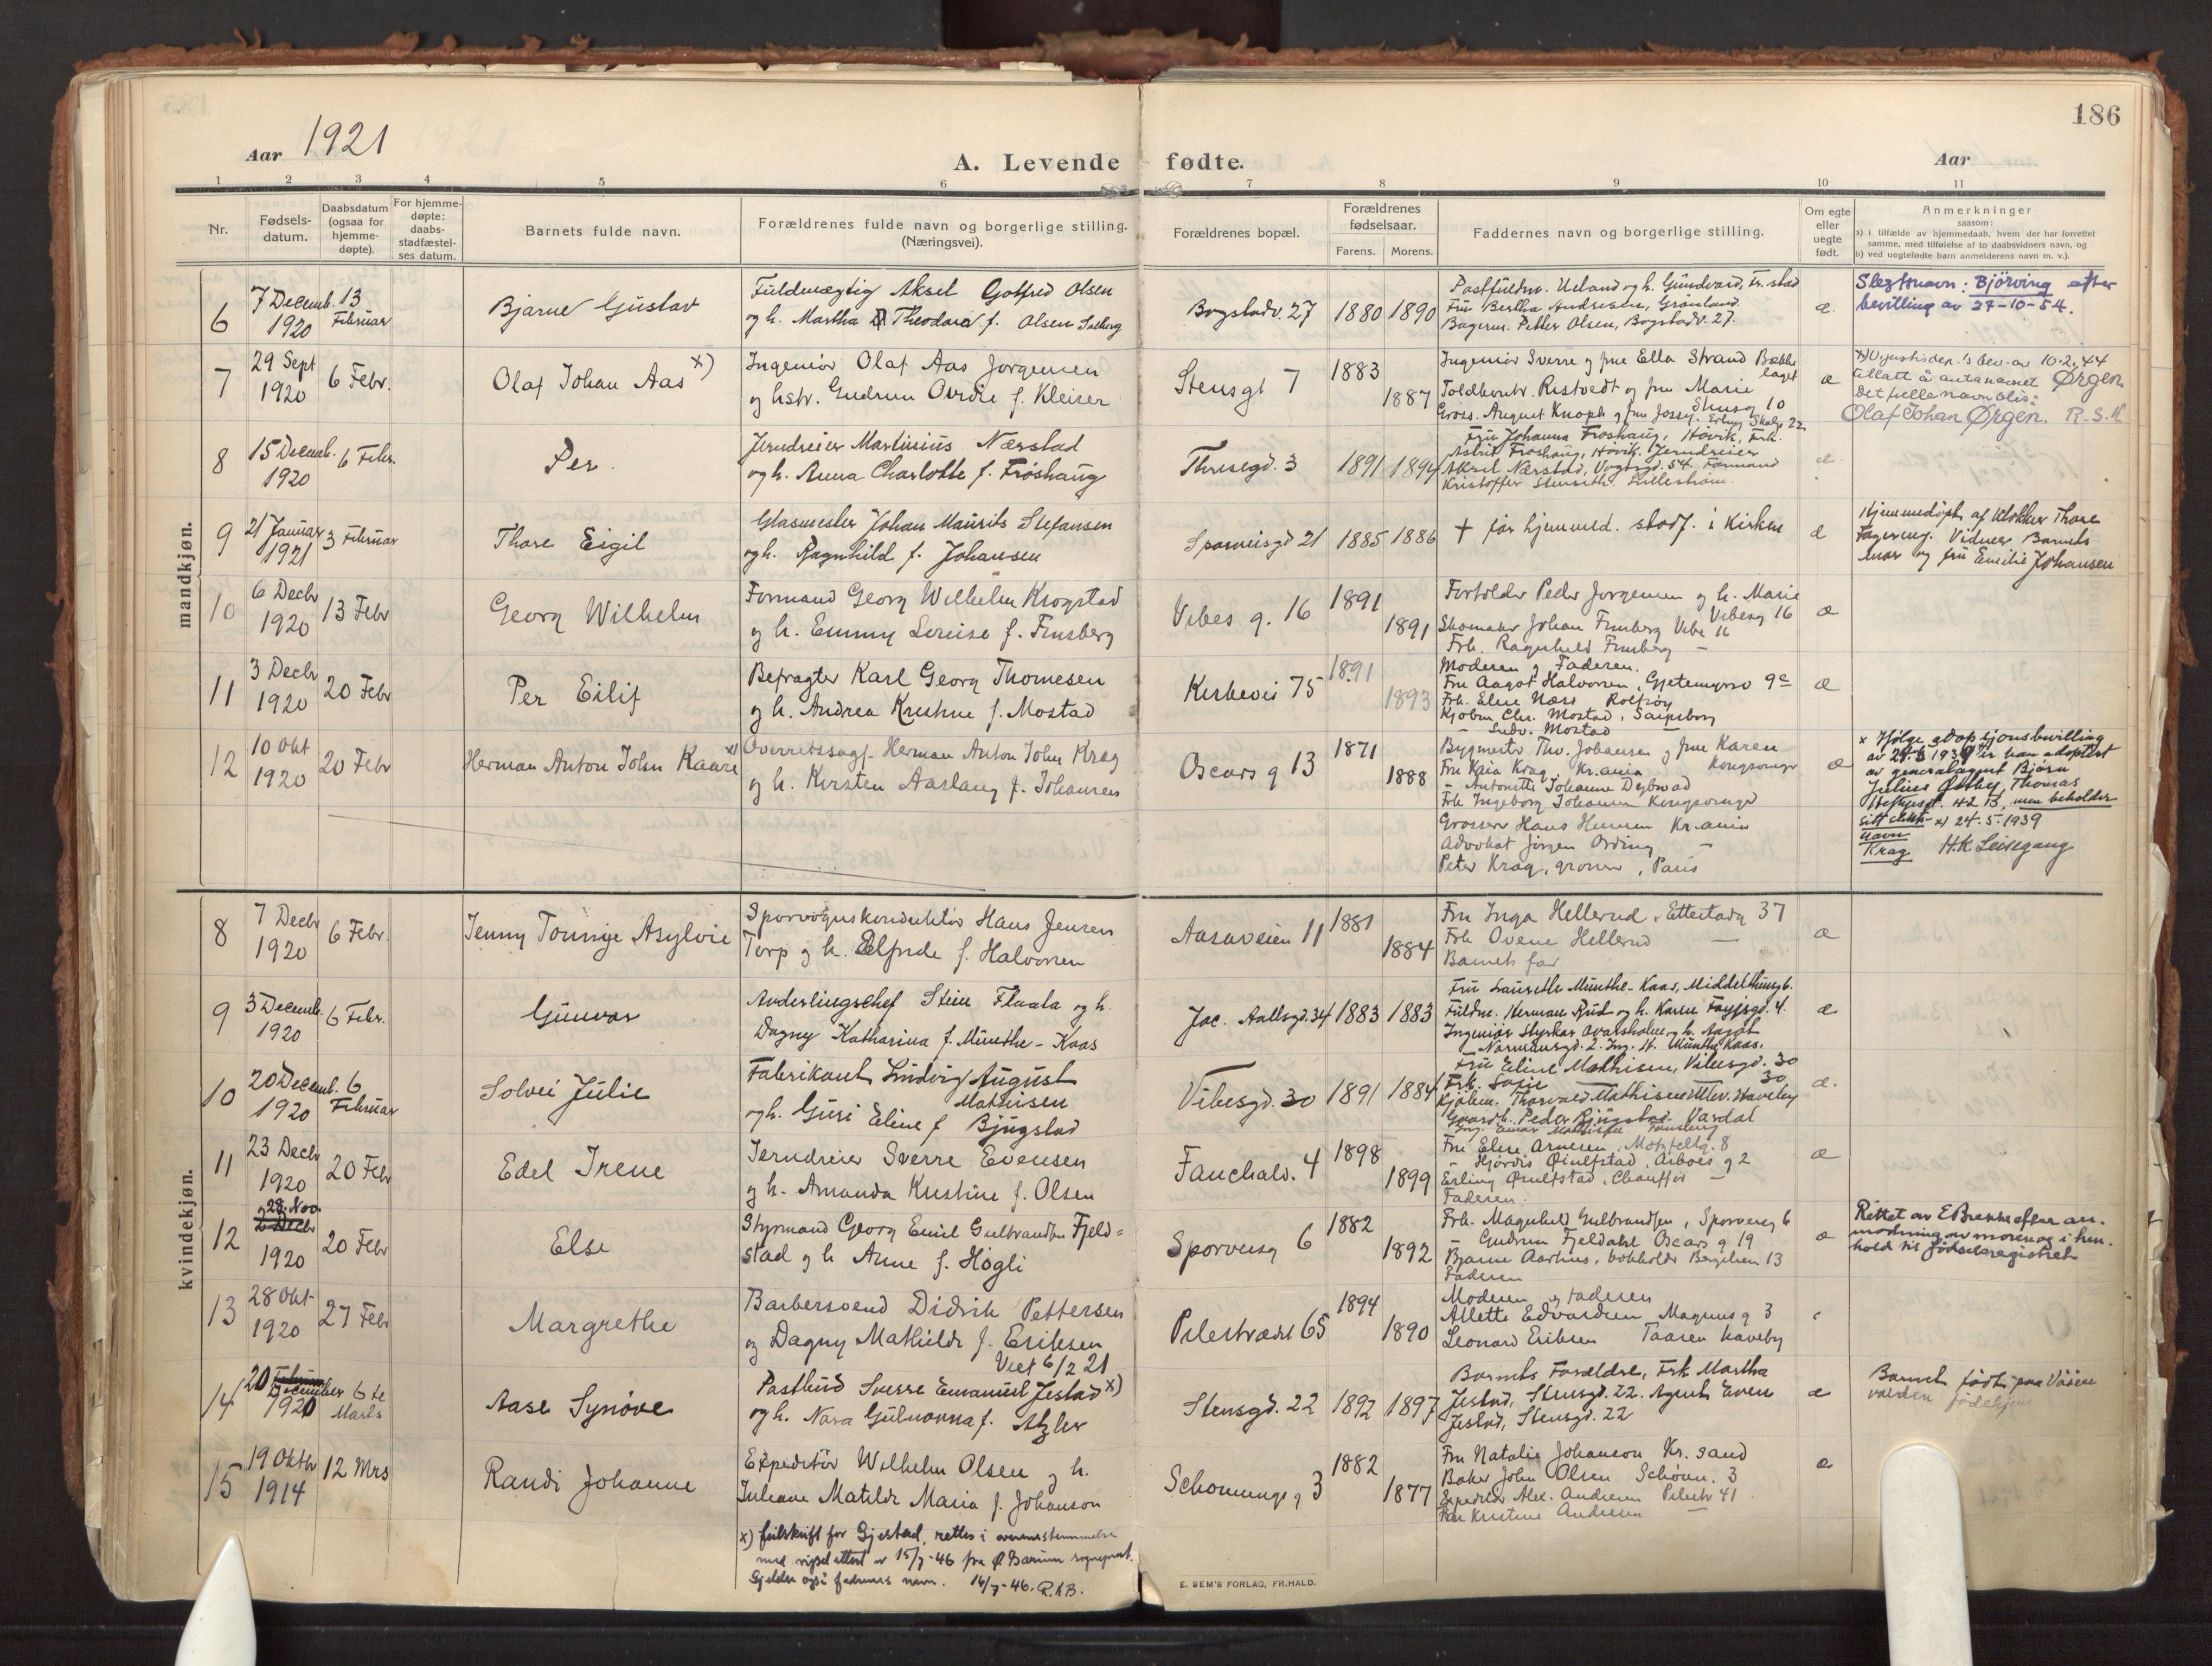 186
Aar 1921
A. Levende fødte.
Aar
1 2 3 4 5 6 7 8 9 10 11
Nr.
Fødsels-
datum.
Daabsdatum
(ogsaa for
hjemme-
døpte).
For hjemme-
døpte:
daabs-
stadfæstel-
ses datum.
Barnets fulde navn.
Forældrenes fulde navn og borgerlige stilling.
(Næringsvei).
Forældrenes bopæl.
Forældrenes
fødselsaar.
Farens. Morens.
Faddernes navn og borgerlige stilling.
Om egte
eller
uegte
født.
Anmerkninger
saasom:
a) i tilfælde av hjemmedaab, hvem der har forrettet
samme, med tilføielse af to daabsvidners navn, og
b) ved uegtefødte barn anmelderens navn m. v.).
mandkjøn.
6
7 Decemb.
1920
13
Februar
Bjarne Gustav
Fuldmægtig Aksel Gotfred Olsen
og h. Martha Theodora f. Olsen
Bogstadv. 27
1880 1890
Fru Bertha Andresen, Grønland.
Bagerm. Petter Olsen, Bogstadv. 27.
æ.
Slegtsnavn: Bjørving efter
bevilling av 27-10-54.
7
29 Sept
1920
6 Febr.
Olaf Johan Aas x)
Ingeniør Olaf Aas Jørgensen
og hstr. Gudrun Ovidie f. Kleiser
Stensgt 7
1883
1887
Ingeniør Sverre og frue Ella Strand Bække
laget
Toldkontr. Rustvedt og frue Marie
Stensg 10
Gross. August Knoph og frue
æ
x) Justisdep.'s bev. av 10-2-44
tillatt å anta navnet Ørgen
Det fulle navn blir:
Olaf Johan Ørgen. R.S.H
8
15 Decemb.
1920
6 Febr.
Per.
Jerndreier Martinius Nærstad
og h. Anna Charlotte f. Frøshaug
Theresegd. 3
1891 1894
Fru Johanna Froshaug, Høvik, Frk.
Astrid Froshaug, Høvik. Jerndreier
Aksel Nærstad, Vogtsgd. 54. Formand
Kristoffer Stenseth. Lillestrøm.
æ
9
21 Januar
1921
3 Februar
Thore Eigil
Glasmester Johan Maurits Stefansen
og h. Ragnhild f. Johansen
Sporveisgd 21
1885 1886
+ før hjemmed. stadf. i Kirken
æ
Hjemmedøpt af klokker Thore
Fagereng. Vidner Barnets
mor og fru Emilie Johansen
10
6 Decbr
1920
13 Febr
Georg Wilhelm
Formand Georg Wilhelm Krogstad
og h. Emmy Lovise f. Finsberg
Vibes g. 16
1891
1891
Forvolder Peder Jørgensen og h. Marie
Vibesg 16
Skomaker Johan Finsberg Vibe 16
Frk. Ragnhild Finsberg –
æ
11
3 Decbr
1920
20 Febr
Per Eilif
Befragter Karl Georg Thomesen
og h. Andrea Kristine f. Mostad
Kirkevei 75
1891
1893
Moderen og Faderen.
Fru Aagot Halvorsen, Gjetemyrsv 9c
Frk. Eline Næss Rolfsøy
Kjøbm Chr. Mostad, Sarpsborg
– Ludv. Mostad
æ
12
10 Okt
1920
20 Febr
Herman Anton John Kaare x)
Overretssagf. Herman Anton John Krag
og h. Kirsten Aaslaug f. Johansen
Oscars g 13
1871
1888
Bygmester Thv. Johansen og frue Karen
Kongsvinger
Fru Kaia Krag, Kr.ania
– Antonette Johanne Dybwad
Frk Ingeborg Johansen Kongsvinger
Grosser Hans Hansen Kr.ania
Advokat Jørgen Ording –
Peter Krag, grosser, Paris
æ
x Ifølge adopsjonsbevilling
av 24.5 1939 er han adoptert
av generalagent Bjørn
Julius Østby, Thomas
Heftyesgt. 42 B, men beholder
sitt slekts- x) 24.5.1939
navn
Krag H.K. Leisegang
kvindekjøn.
8
7 Decbr
1920
6 Febr.
Jenny Tounije Asylvie
Sporvognskonduktør Hans Jensen
Torp og h. Elfride f. Halvorsen
Aasaveien 11
1881
1884
Fru Inga Hellerud, Etterstadg 37
Frk Ovene Hellerud –
Barnets far
æ
9
3 Decemb.
1920
6 Febr.
Gunvor
Avdelingschef Stein Flaata og h.
Dagny Katharina f. Münthe-Kaas
Jac. Aallsgd. 34
1883 1883
Fru Laurette Münthe-Kaas, Middelthunsg 6.
Fuldm. Herman Rud og h. Karen Fayesgd. 4.
Ingeniør Styrkar Ovarsholm og h. Aagot
Normannsgd. 2. Ing. H. Münthe Kaas.
æ
10
20 Decemb.
1920
6
Februar
Solvei Julie
Fabrikant Ludvig August
Mathisen
og h. Guri Eline f Bjugstad
Vibesgd. 30
1891 1884
Fru Eline Mathisen, Vibesgd. 30
Frk. Sofie 30
Kjøbm. Thorvald Mathisen Ullev. Haveby
Gaardb. Peder Bjugstad Vardal
æ.
11
23 Decbr
1920
20 Febr
Edel Irene
Jerndreier Sverre Evensen
og h. Amanda Kristine f. Olsen
Fauchalv. 4
1898
1899
Fru Elise Arnesen, Motzfeltg. 8
– Hjørdis Quilfstad, Arboes g 2
Erling Quilfstad, Chauffør –
Faderen.
æ
12
28. Nov.
1920
20 Febr
Else
Styrmand Georg Emil Gulbrandsen Fjeld=
stad og h Anne f. Høgli
Sporveisg 6
1882
1892
Frk. Magnhild Gulbrandsen, Sporveisg 6
– Gudrun Fjeldahl Oscars g 19
Bjarne Aarhus, bokholder Bergslien 13
Faderen
æ
Rettet av E Brekke efter an-
modning av moren og i hen-
hold til fødselsregistret
13
28 Okt
1920
27 Febr
Margrethe
Barbersvend Didrik Pettersen
og Dagny Mathilde f. Eriksen
Viet 6/2 21
Pilestrædet 65
1894
1890
Moderen og faderen
Allette Edvardsen Magnus g 3
Leonard Eriksen Taasen haveby
14
20
December
1920
6 te
Marts
Aase Synøve
Postbud Sverre Emanuel Jestad x)
og h. Nora Gulnanna f. Atzler
Stensgd. 22
1892 1897
Barnets Forældre, Frk Martha
Jestad, Stensgd. 22. Agent Even
Jestad, Stensgd. 22
æ
Barnet født paa
15
19 Oktbr
1914
12 Mrs
Randi Johanne
Expeditør Wilhelm Olsen og h.
Juliane Matilde Maria f. Johanson
Schønnings g 3
1882
1877
Fru Natalie Johanson Kr. sand
Baker John Olsen Schønn. 3
Expeditør Alex. Andresen Pilestr 41
Fru Kristine Andresen –
æ
x) feilskrift for Gjestad, rettes i overensstemmelse
med vigselattest av 15/7-46 fra Ø. Bærum sogneprest.
Gjelder også faderens navn. 16/7-46. R.A.B.
E. SEM'S FORLAG, FR.HALD.